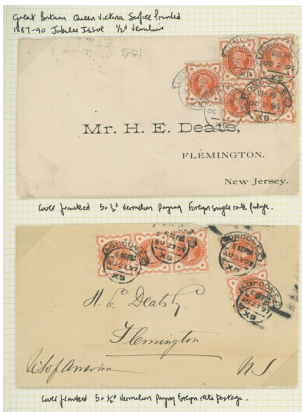 Great Britain Queen Victoria Surface Printed
1887-90 Jubilee Issue ½d Vermilion
Mr. H. E. Deats,
FLEMINGTON,
New Jersey.
Cover franked 5x½d Vermilion paying Foreign single rate postage.
LONDON
X9
H. E. Deats Esq
Flemington
U.S. of America N.J.
Cover franked 5x½d Vermilion paying Foreign rate postage.